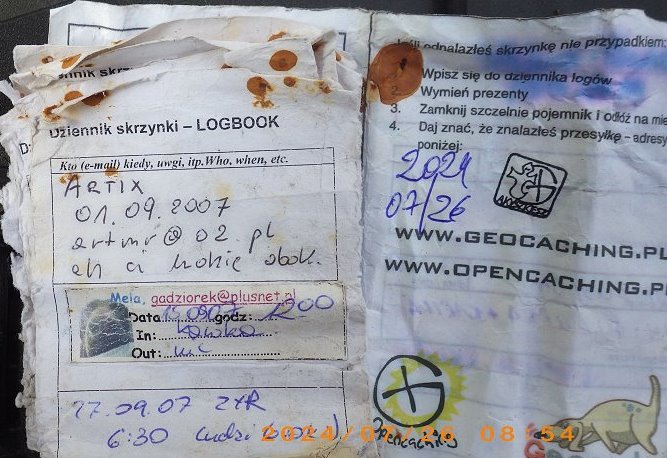 Dziennik skrzynki – LOGBOOK
Kto (e-mail) kiedy, uwgi, itp.Who, when, etc.
ARTIX
01.09.2007
artmr@o2.pl
Meia, gadziorek@plusnet.pl
Data 15.09.07 godz: 1200
In: kawka
Out:
17.09.07 ZYR
6:30
odnalazłeś skrzynkę nie przypadkiem:
Wpisz się do dziennika logów
2. Wymień prezenty
3. Zamknij szczelnie pojemnik i odłóż na mie
4. Daj znać, że znalazłeś przesyłkę – adresy
poniżej:
2024
07/26
WWW.GEOCACHING.PL
WWW.OPENCACHING.P
Opencaching
2024/07/26 08:54